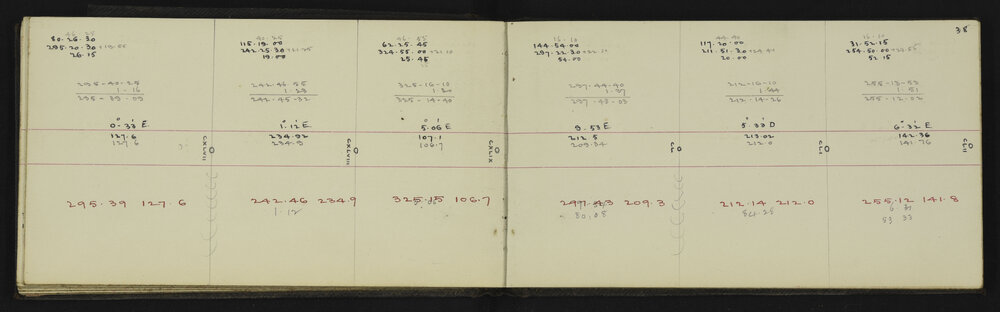 38
80.26.30
295.20.30+19.55
26.15
295-40-25
1-16
295-39-09
0°33' E.
127.6
127.6
CXLVII
295.39 127.6
40-25
115.19.00
242.25.30+21.25
19.00
242-46-55
1-23
242-45-32
1°12' E
234.92
234.9
CXLVIII
242.46 234.9
1.12
62.25.45
324.55.00+21.10
25.45
325-16-10
1-30
325-14-40
5°06 E
107.1
106.7
CXLIX
325.15 106.7
16-10
144.54.00
297.22.30+22.10
54.00
297-44-40
1-37
297-43-03
9.53 E
212.5
209.34
CL
297.43 209.3
80.08
44-40
117.20.00
211.51.30+24.40
20.00
212-16-10
1-44
212-14-26
5°33' D
213.02
212.0
CLI
212.14 212.0
84.28
31.52.15
254.50.00
52.15
255-13-53
1-51
255-12-02
6-32 E
142.36
141.76
CLII
255.12 141.8
53 33